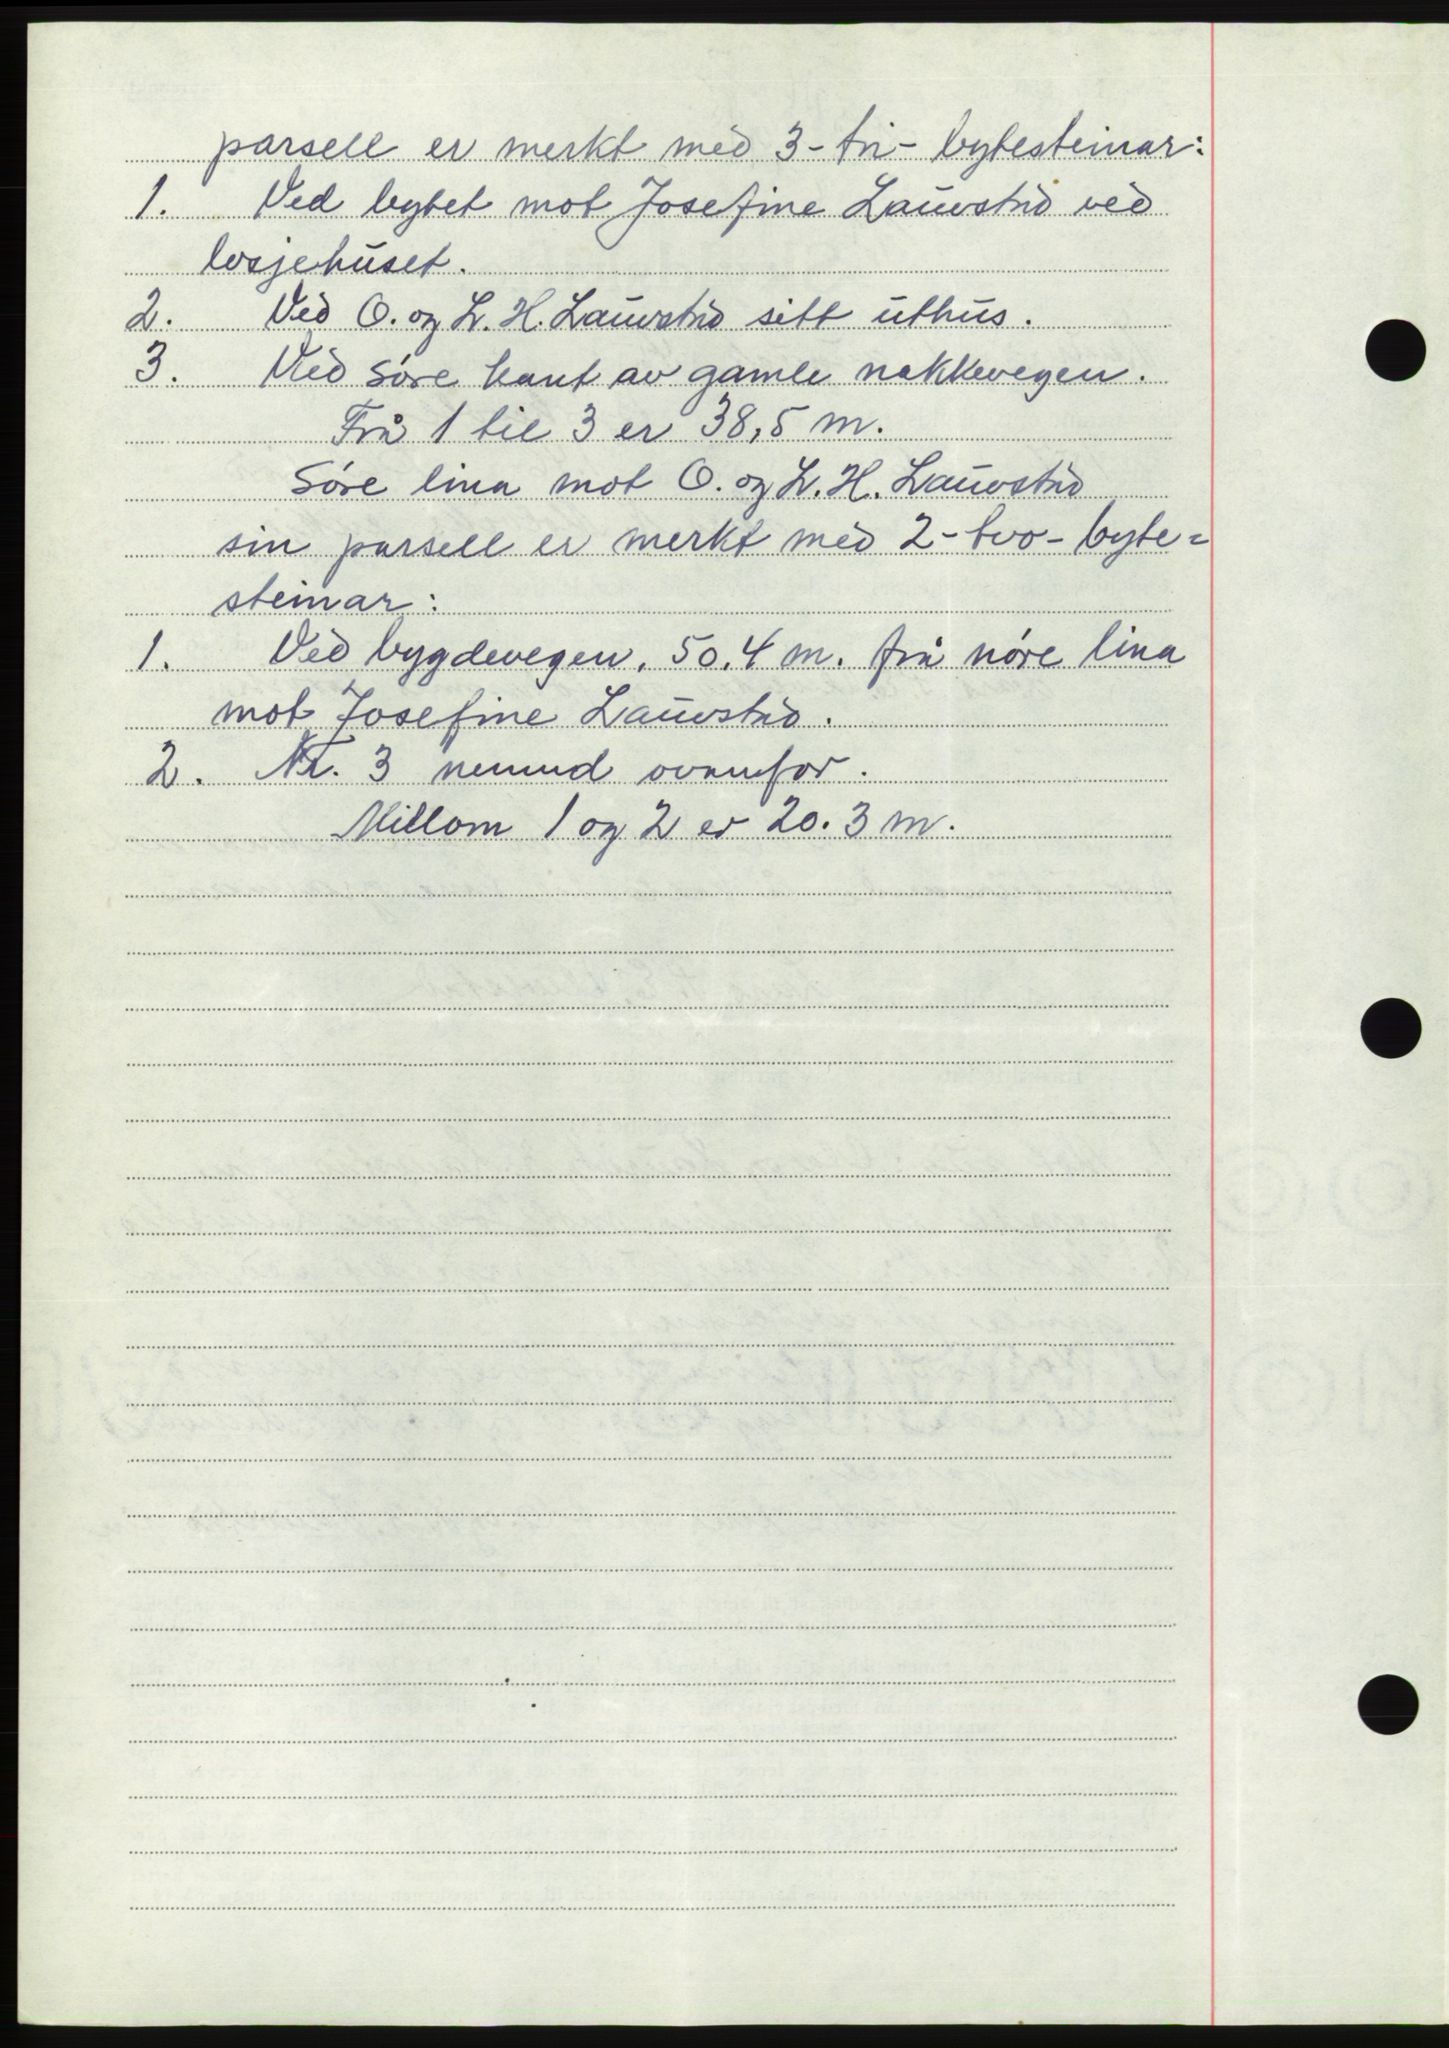 parsell er merkt med 3 - tri - bytesteinar:
1. Ved bytet mot Josefine Lauvstad ved
losjehuset.
2. Ved O. og L. H. Lauvstad sitt uthus.
3. Ved søre kant av gamle nakkevegen.
Frå 1 til 3 er 38,5 m.
Søre lina mot O. og L. H. Lauvstad
sin parsell er merkt med 2 - tvo - byte=
steinar:
1. Ved bygdevegen, 50,4 m. frå nøre lina
mot Josefine Lauvstad.
2. Nr. 3 nemnd ovanfor.
Millom 1 og 2 er 20.3 m.